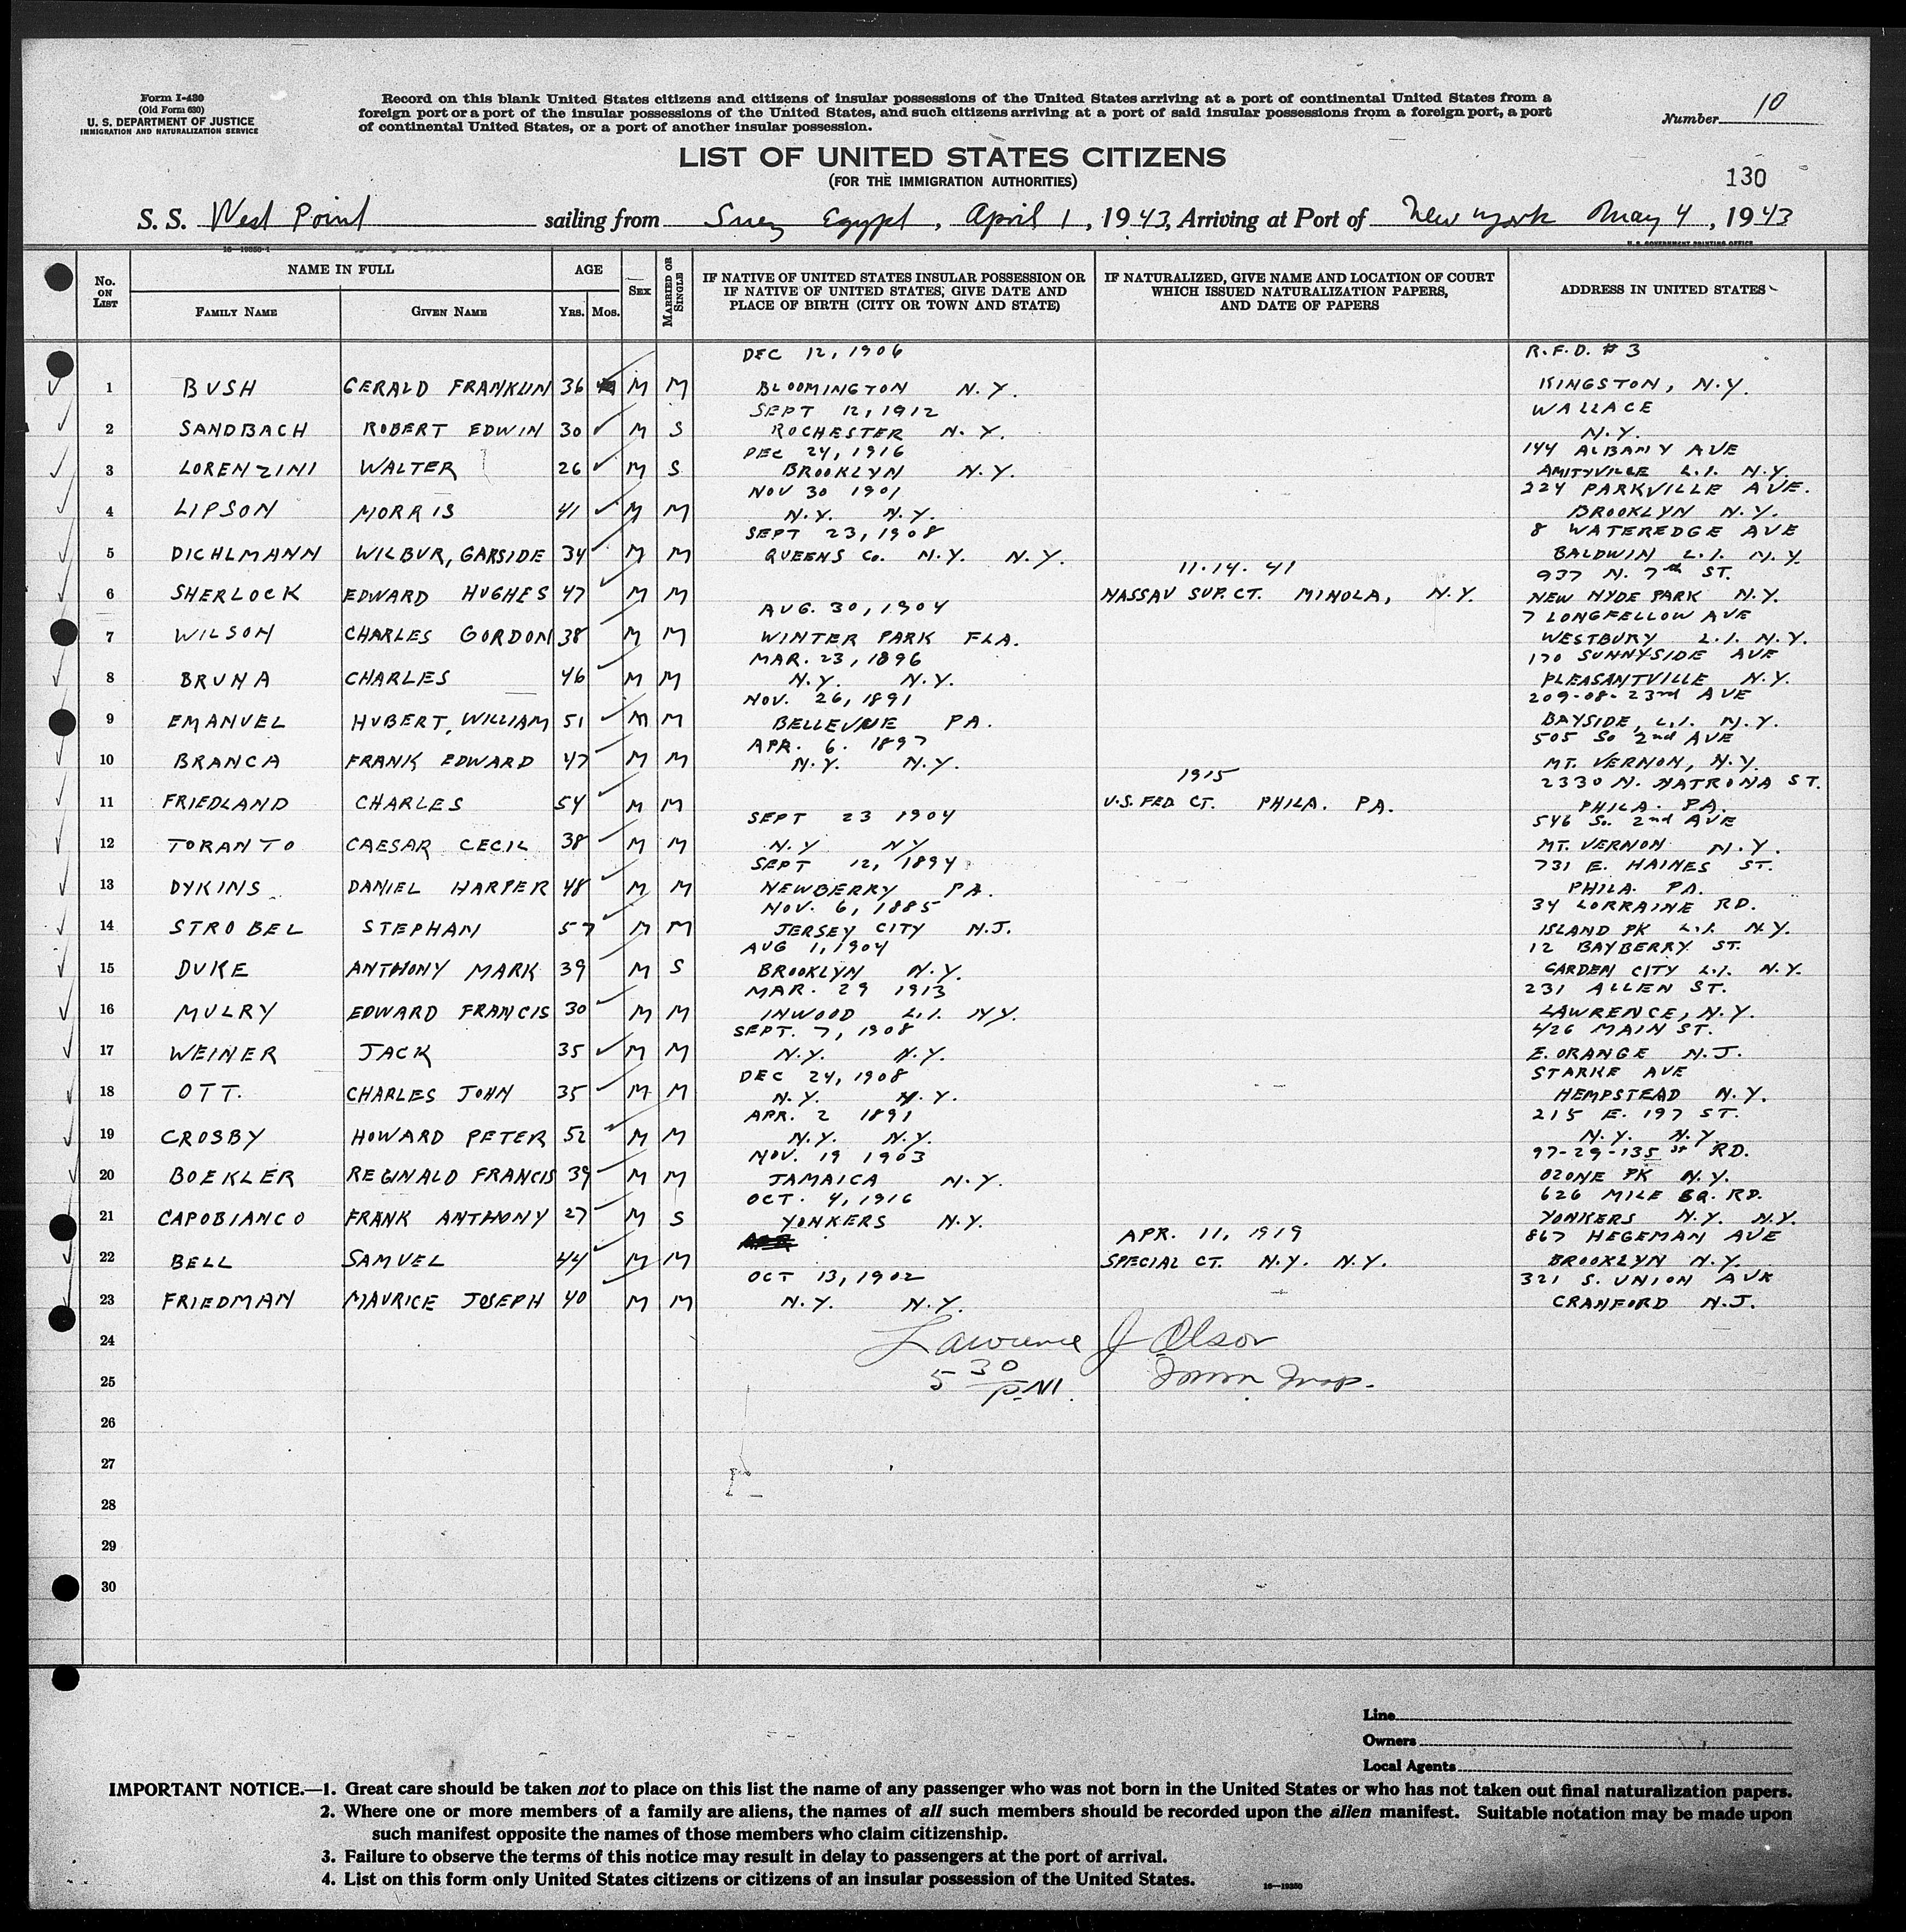 Form I-430
(Old Form 630)
U. S. DEPARTMENT OF JUSTICE
IMMIGRATION AND NATURALIZATION SERVICE
Record on this blank United States citizens and citizens of insular possessions of the United States arriving at a port of continental United States from a
foreign port or a port of the insular possessions of the United States, and such citizens arriving at a port of said insular possessions from a foreign port, a port
of continental United States, or a port of another insular possession.
Number 10
LIST OF UNITED STATES CITIZENS
(FOR THE IMMIGRATION AUTHORITIES)
130
S. S. West Point sailing from Suez Egypt, April 1, 1943, Arriving at Port of New York May 4, 1943
16—19350-1
U. S. GOVERNMENT PRINTING OFFICE
No. ON LIST
NAME IN FULL
FAMILY NAME
GIVEN NAME
AGE
YRS. MOS.
SEX
MARRIED OR SINGLE
IF NATIVE OF UNITED STATES INSULAR POSSESSION OR
IF NATIVE OF UNITED STATES, GIVE DATE AND
PLACE OF BIRTH (CITY OR TOWN AND STATE)
IF NATURALIZED, GIVE NAME AND LOCATION OF COURT
WHICH ISSUED NATURALIZATION PAPERS,
AND DATE OF PAPERS
ADDRESS IN UNITED STATES
DEC 12, 1906 R.F.D. # 3
1 BUSH GERALD FRANKLIN 36 M M BLOOMINGTON N.Y. KINGSTON, N.Y.
SEPT 12, 1912 WALLACE
2 SANDBACH ROBERT EDWIN 30 M S ROCHESTER N.Y. N.Y.
DEC 24, 1916 144 ALBANY AVE
3 LORENZINI WALTER 26 M S BROOKLYN N.Y. AMITYVILLE L.I. N.Y.
NOV 30 1901 224 PARKVILLE AVE.
4 LIPSON MORRIS 41 M M N.Y. N.Y. BROOKLYN N.Y.
SEPT 23, 1908 8 WATEREDGE AVE
5 DICHLMANN WILBUR, GARSIDE 34 M M QUEENS Co. N.Y. N.Y. BALDWIN L.I. N.Y.
11.14. 41 937 N. 7th ST.
6 SHERLOCK EDWARD HUGHES 47 M M NASSAU SUP. CT. MINOLA, N.Y. NEW HYDE PARK N.Y.
AUG. 30, 1904 7 LONGFELLOW AVE
7 WILSON CHARLES GORDON 38 M M WINTER PARK FLA. WESTBURY L.I. N.Y.
MAR. 23, 1896 170 SUNNYSIDE AVE
8 BRUNA CHARLES 46 M M N.Y. N.Y. PLEASANTVILLE N.Y.
NOV. 26, 1891 209-08-23rd AVE
9 EMANUEL HUBERT, WILLIAM 51 M M BELLEVUE PA. BAYSIDE, L.I. N.Y.
APR. 6. 1897 505 So 2nd AVE
10 BRANCA FRANK EDWARD 47 M M N.Y. N.Y. MT. VERNON, N.Y.
1915 2330 N. NATRONA ST.
11 FRIEDLAND CHARLES 54 M M U.S. FED CT. PHILA. PA. PHILA. PA.
SEPT 23 1904 546 So. 2nd AVE
12 TORANTO CAESAR CECIL 38 M M N.Y NY MT. VERNON N.Y.
SEPT 12, 1894 731 E. HAINES ST.
13 DYKINS DANIEL HARPER 48 M M NEWBERRY PA. PHILA. PA.
NOV. 6, 1885 34 LORRAINE RD.
14 STROBEL STEPHAN 57 M M JERSEY CITY N.J. ISLAND PK L.I. N.Y.
AUG 1, 1904 12 BAYBERRY ST.
15 DUKE ANTHONY MARK 39 M S BROOKLYN N.Y. GARDEN CITY L.I. N.Y.
MAR. 29 1913 231 ALLEN ST.
16 MULRY EDWARD FRANCIS 30 M M INWOOD L.I. NY. LAWRENCE, N.Y.
SEPT. 7, 1908 426 MAIN ST.
17 WEINER JACK 35 M M N.Y. N.Y. E. ORANGE N.J.
DEC 24, 1908 STARKE AVE
18 OTT. CHARLES JOHN 35 M M N.Y. N.Y. HEMPSTEAD N.Y.
APR. 2 1891 215 E. 197 ST.
19 CROSBY HOWARD PETER 52 M M N.Y. N.Y. N.Y. N.Y.
NOV. 19 1903 97-29-135 st RD.
20 BOEKLER REGINALD FRANCIS 39 M M JAMAICA N.Y. OZONE PK N.Y.
OCT. 4, 1916 626 MILE SQ. RD.
21 CAPOBIANCO FRANK ANTHONY 27 M S YONKERS N.Y. YONKERS N.Y. N.Y.
APR. 11, 1919 867 HEGEMAN AVE
22 BELL SAMUEL 44 M M SPECIAL CT. N.Y. N.Y. BROOKLYN N.Y.
OCT 13, 1902 321 S. UNION AVE
23 FRIEDMAN MAURICE JOSEPH 40 M M N.Y. N.Y. CRANFORD N.J.
24 Lawrence J Olson
25 5 30 P.M. Imm Insp.
26
27
28
29
30
Line
Owners
Local Agents
IMPORTANT NOTICE.—1. Great care should be taken not to place on this list the name of any passenger who was not born in the United States or who has not taken out final naturalization papers.
2. Where one or more members of a family are aliens, the names of all such members should be recorded upon the alien manifest. Suitable notation may be made upon
such manifest opposite the names of those members who claim citizenship.
3. Failure to observe the terms of this notice may result in delay to passengers at the port of arrival.
4. List on this form only United States citizens or citizens of an insular possession of the United States.
16—19350